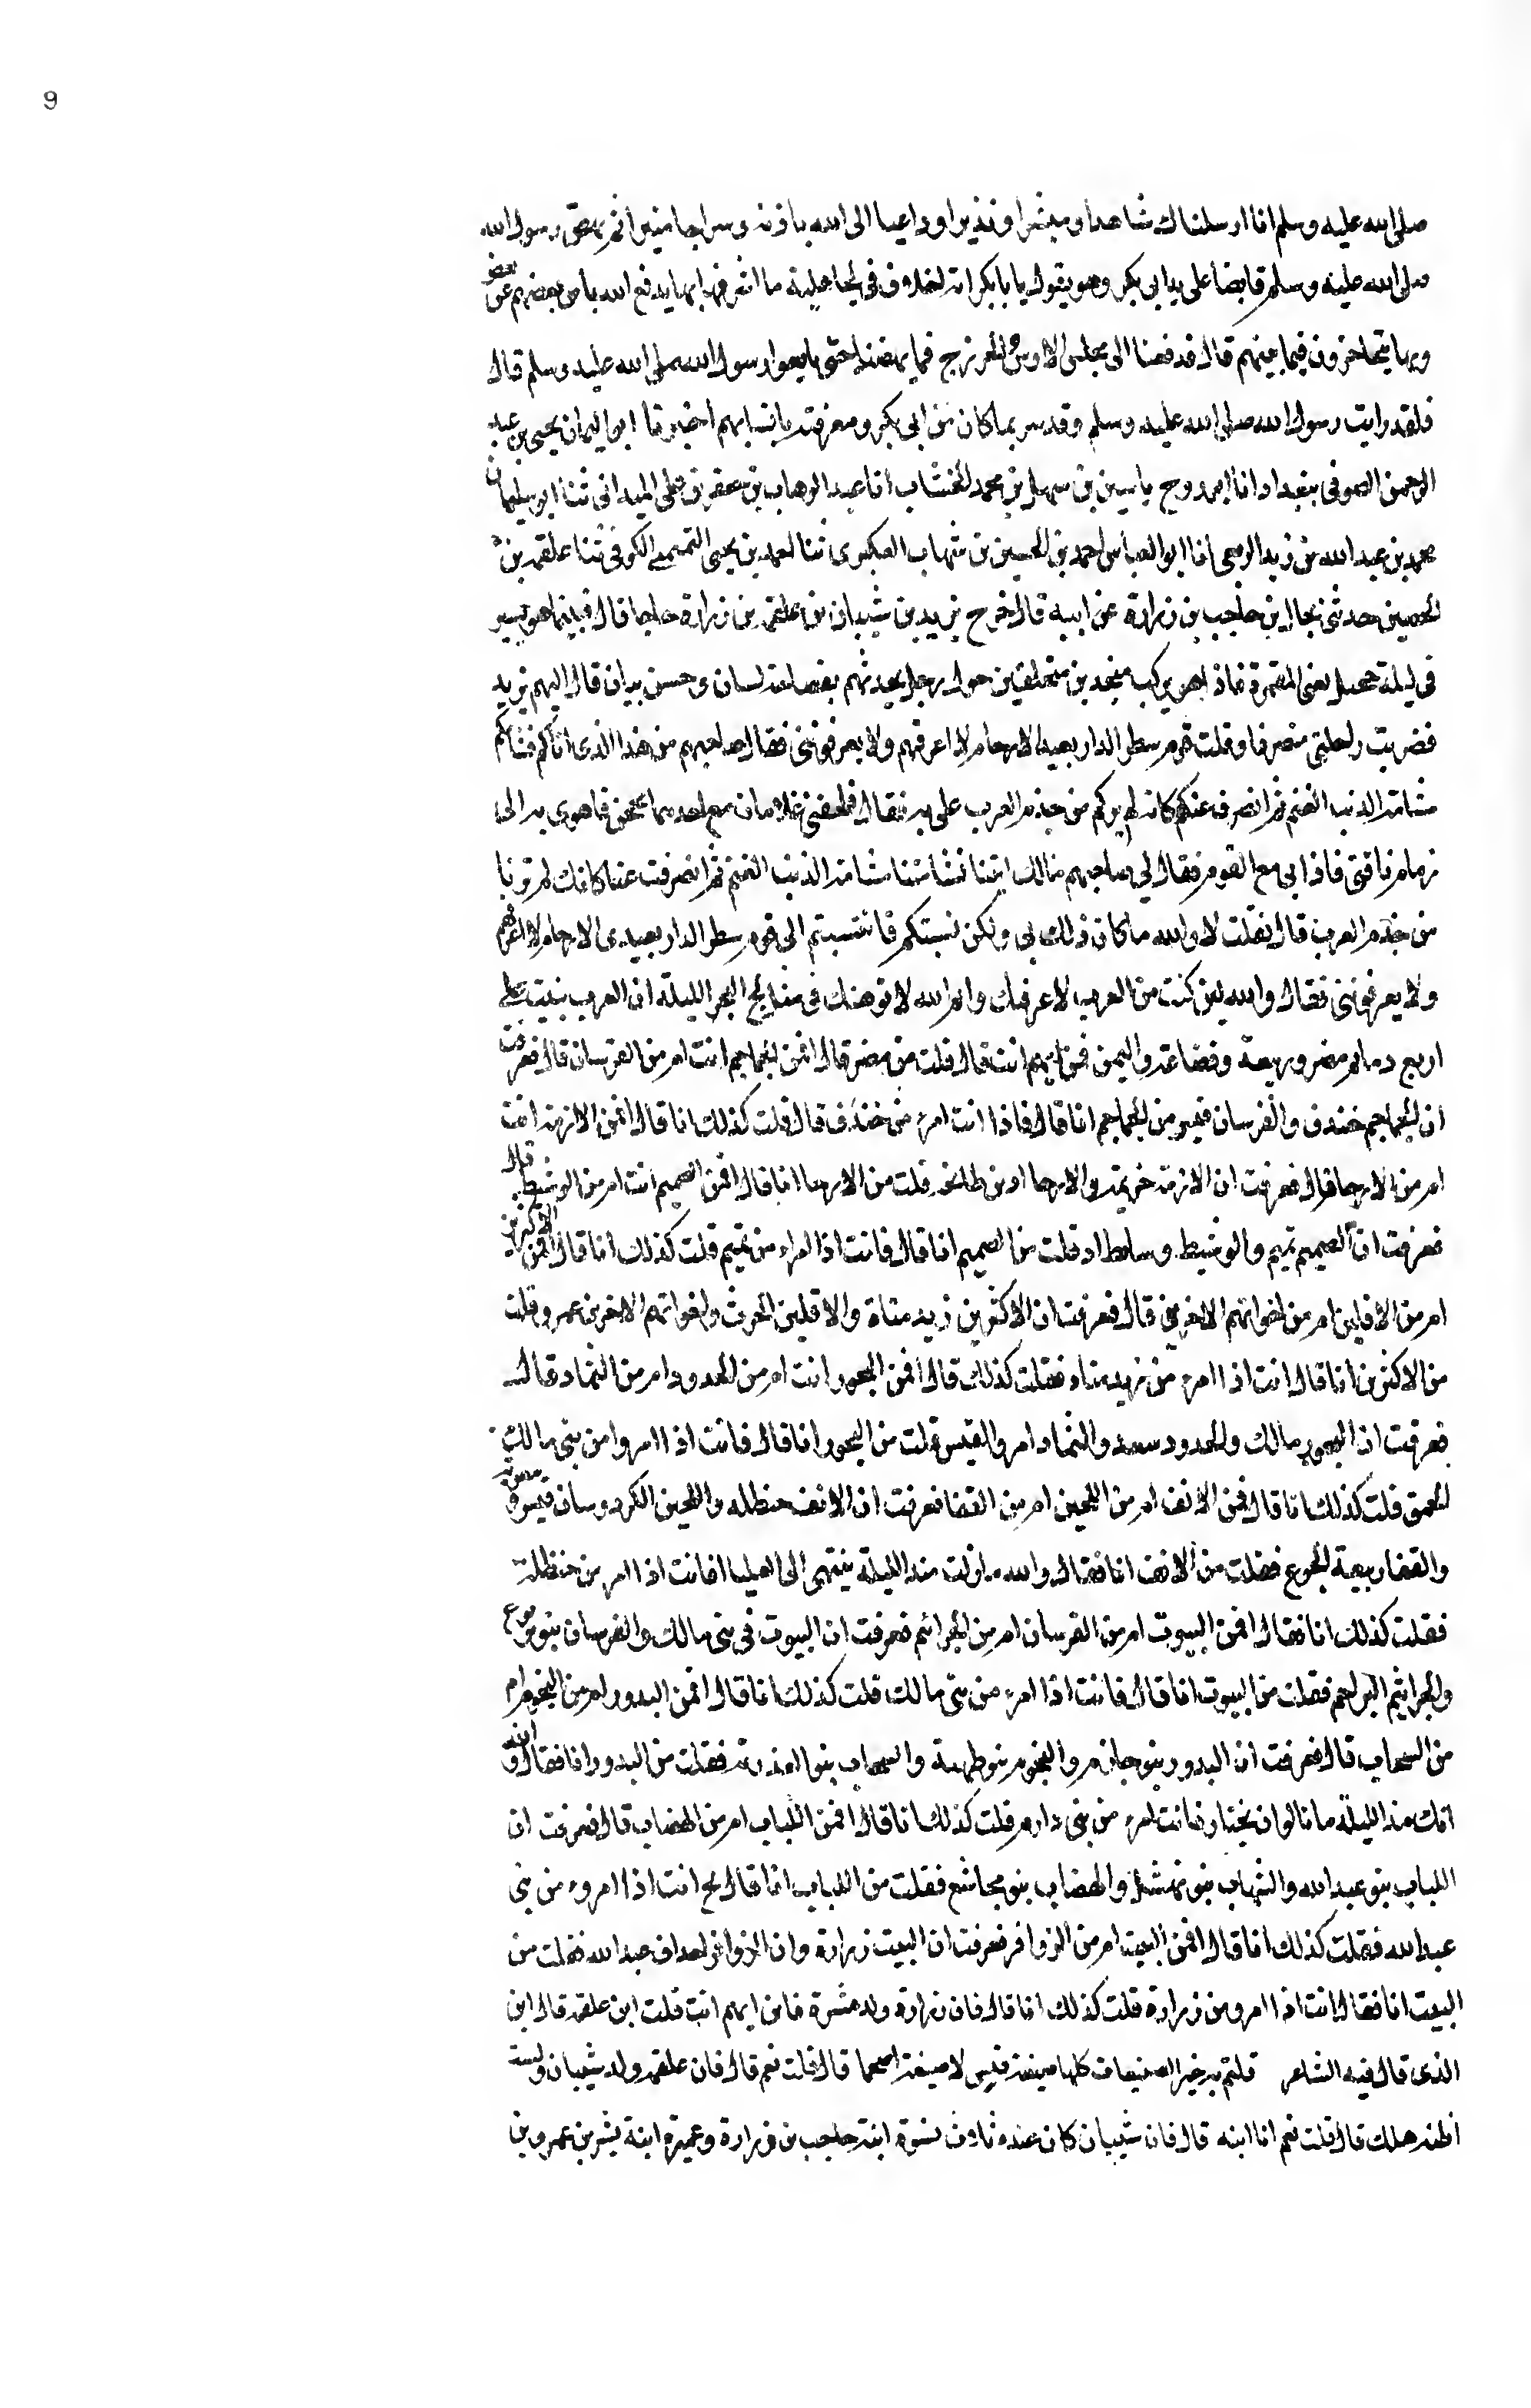 9
صلى الله عليه وسلم انا ارسلناك شاهدا ومبشرا ونذيرا وداعيا الى الله باذنه وسراجا منيرا ثم نهض رسول الله
صلى الله عليه وسلم قابضا على يد ابى بكر وهو يقول يا بابكر اية اخلاق فى الجاهلية ما اشرفها بها يدفع الله باس بعضهم عن بعض
وبها يتحاجزون فيما بينهم قال فدفعنا الى مجلس الاوس والخزرج فما نهضنا حتى بايعوا رسول الله صلى الله عليه وسلم قال
فلقد رايت رسول الله صلى الله عليه وسلم وقد سر بما كان من ابى بكر ومعرفته بانسابهم اخبرنا ابو اليمان يحيى بن عبد
الرحمن الصوفى ببغداد انا ياسين بن سهل بن محمد الخشاب انا عبد الوهاب بن جعفر بن على الميدانى ثنا ابو سليمان
محمد بن عبد الله بن زيد الربعى انا ابو العباس احمد بن الحسين بن شهاب العكبرى ثنا احمد بن يحيى التميمى الكوفى ثنا علقمة بن
الحصين حدثنى بن حاجب بن زرارة عن ابيه قال خرج يزيد بن شيبان بن علقمة بن زرارة حاجا قال فبينما هو يسير
فى ليلة يعنى المقمرة فاذا هو بركب متحلقين حول رجل يحدثهم بفصاحة لسان وحسن بيان قال اليهم يزيد
فضربت راحلتى منصرفا وقلت قوم سطر الدار بعيد الارحام لا اعرفهم ولا يعرفوننى فقال صاحبهم من هذا الذى اتاكم فشامكم
مشامة الذئب الغنم ثم انصرف عنكم كانه لم يركم من جذم العرب على به فقال فلحقنى غلامان مع احدهما محجن فاهوى به الى
زمام ناقتى فاذا بى مع القوم فقال لى صاحبهم مالك اتيتنا فشاممتنا مشامة الذئب الغنم ثم انصرفت عنا كانك لم ترنا
من جذم العرب قال فقلت لا والله ما كان ذلك بى ولكن نسبتكم فانتسبتم الى قوم سطر الدار بعيدى الارحام لا اعرفهم
ولا يعرفوننى فقال والله لئن كنت من العرب لاعرفنك وايم الله لاتوهنك فى البحر الليلة ان العرب بنيت على
اربع دعايم مضر وربيعة وقضاعة واليمن فمن ايهم انت قال قلت من مضر قال افمن الجماجم انت ام من الفرسان قال فعرفت
ان الجماجم خندف والفرسان قيس من الجماجم انا قال فاذا انت امرء من خندف قال قلت كذلك انا قال افمن الازمة انت
ام من الارحا قال فعرفت ان الازمة خزيمة والارحا اد بن طابخة قلت من الارحا انا قال افمن الصميم انت ام من الوشيظ قال
فعرفت ان الصميم تميم والوشيظ وسايط اد قلت من الصميم انا قال فانت اذا امرء من تميم قلت كذلك انا قال افمن الاكثرين
ام من الاقلين ام من اخوانهم الاخرين قال فعرفت ان الاكثرين زيد مناة والاقلين الحرث واخوانهم الاخرين عمرو قلت
من الاكثرين انا قال انت اذا امرء من زيد مناة فقلت كذلك قال افمن البحور انت ام من الجدود ام من الثماد قال
فعرفت ان البحور مالك والجدود سعد والثماد امرو القيس قلت من البحور انا قال فانت اذا امروا من بنى مالك
قلت كذلك انا قال افمن الانف ام من اللحيين ام من القفا فعرفت ان الانف حنظله واللحيين الكردوسان قيس ومعوية
والقفا ربيعة الجوع فقلت من الانف انا فقال والله ما زلت منذ الليلة ينتهى الى العليا فانت اذا امرء من حنظلة
فقلت كذلك انا فقال افمن البيوت ام من الفرسان ام من الجراثيم فعرفت ان البيوت فى بنى مالك والفرسان بنو يربوع
والجراثيم البراجم فقلت من البيوت انا قال فانت اذا امرء من بنى مالك قلت كذلك انا قال افمن البدور ام من النجوم ام
من السحاب قال فعرفت ان البدور بنو دارم والنجوم بنو طهية والسحاب بنو العدوية فقلت من البدور انا فقال والله
انك منذ الليلة ما تالوا ان تختار فانت امرء من بنى دارم قلت كذلك انا قال افمن اللباب ام من الهضاب قال فعرفت ان
اللباب بنو عبد الله والشهاب بنو نهشل والهضاب بنو مجاشع فقلت من اللباب انا قال بخ انت اذا امروء من بنى
عبد الله فقلت كذلك انا قال افمن البيت ام من الزوافر فعرفت ان البيت زرارة وان الزوافر احلاف عبد الله فقلت من
البيت انا فقال انت اذا امروا من زرارة قلت كذلك انا قال فان زرارة ولد عشرة فابن ايهم انت قلت ابن علقمة قال ابن
الذى قال فيه الشاعر قلتم به خير الضبيعات كلها ضبيعة قيس لا ضبيعة اضجما قال قلت نعم قال فان علقمة ولد شيبان ولست
اظنه هلك قال قلت نعم انا ابنه قال فان شيبان كان عنده ثلاث نسوة ابنة حاجب بن زرارة وعميرة ابنة بشر بن عمرو بن